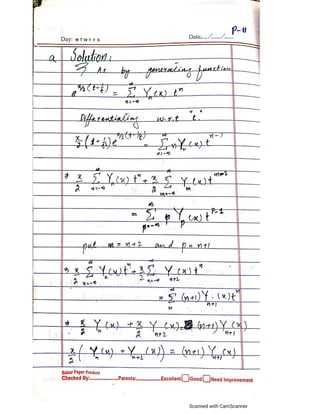 P-11
Day: M T W T F S Date:__/__/__
a Solution:
⇒ As by generating function
e^{x/2 (t-1/t)} = Σ_{n=-∞}^{∞} Y_n(x) t^n
Differentiating w.r.t "t".
x/2 (1+1/t²) e^{x/2(t-1/t)} = Σ_{n=-∞}^{∞} n Y_n(x) t^{n-1}
⇒ x/2 Σ_{n=-∞}^{∞} Y_n(x) t^n + x/2 Σ_{m=-∞}^{∞} Y_m(x) t^{m-2}
= Σ_{p=-∞}^{∞} p Y_p(x) t^{p-1}
put m = n+2 and p = n+1
⇒ x/2 Σ_{n=-∞}^{∞} Y_n(x) t^n + x/2 Σ^{∞} Y_{n+2}(x) t^n
= Σ_n^{∞} (n+1) Y_{n+1}(x) t^n
⇒ x/2 Y_n(x) + x/2 Y_{n+2}(x) = (n+1) Y_{n+1}(x)
x/2 ( Y_n(x) + Y_{n+2}(x) ) = (n+1) Y_{n+1}(x)
Paper Product
Checked By: Parents: Excellent Good Need Improvement
Scanned with CamScanner